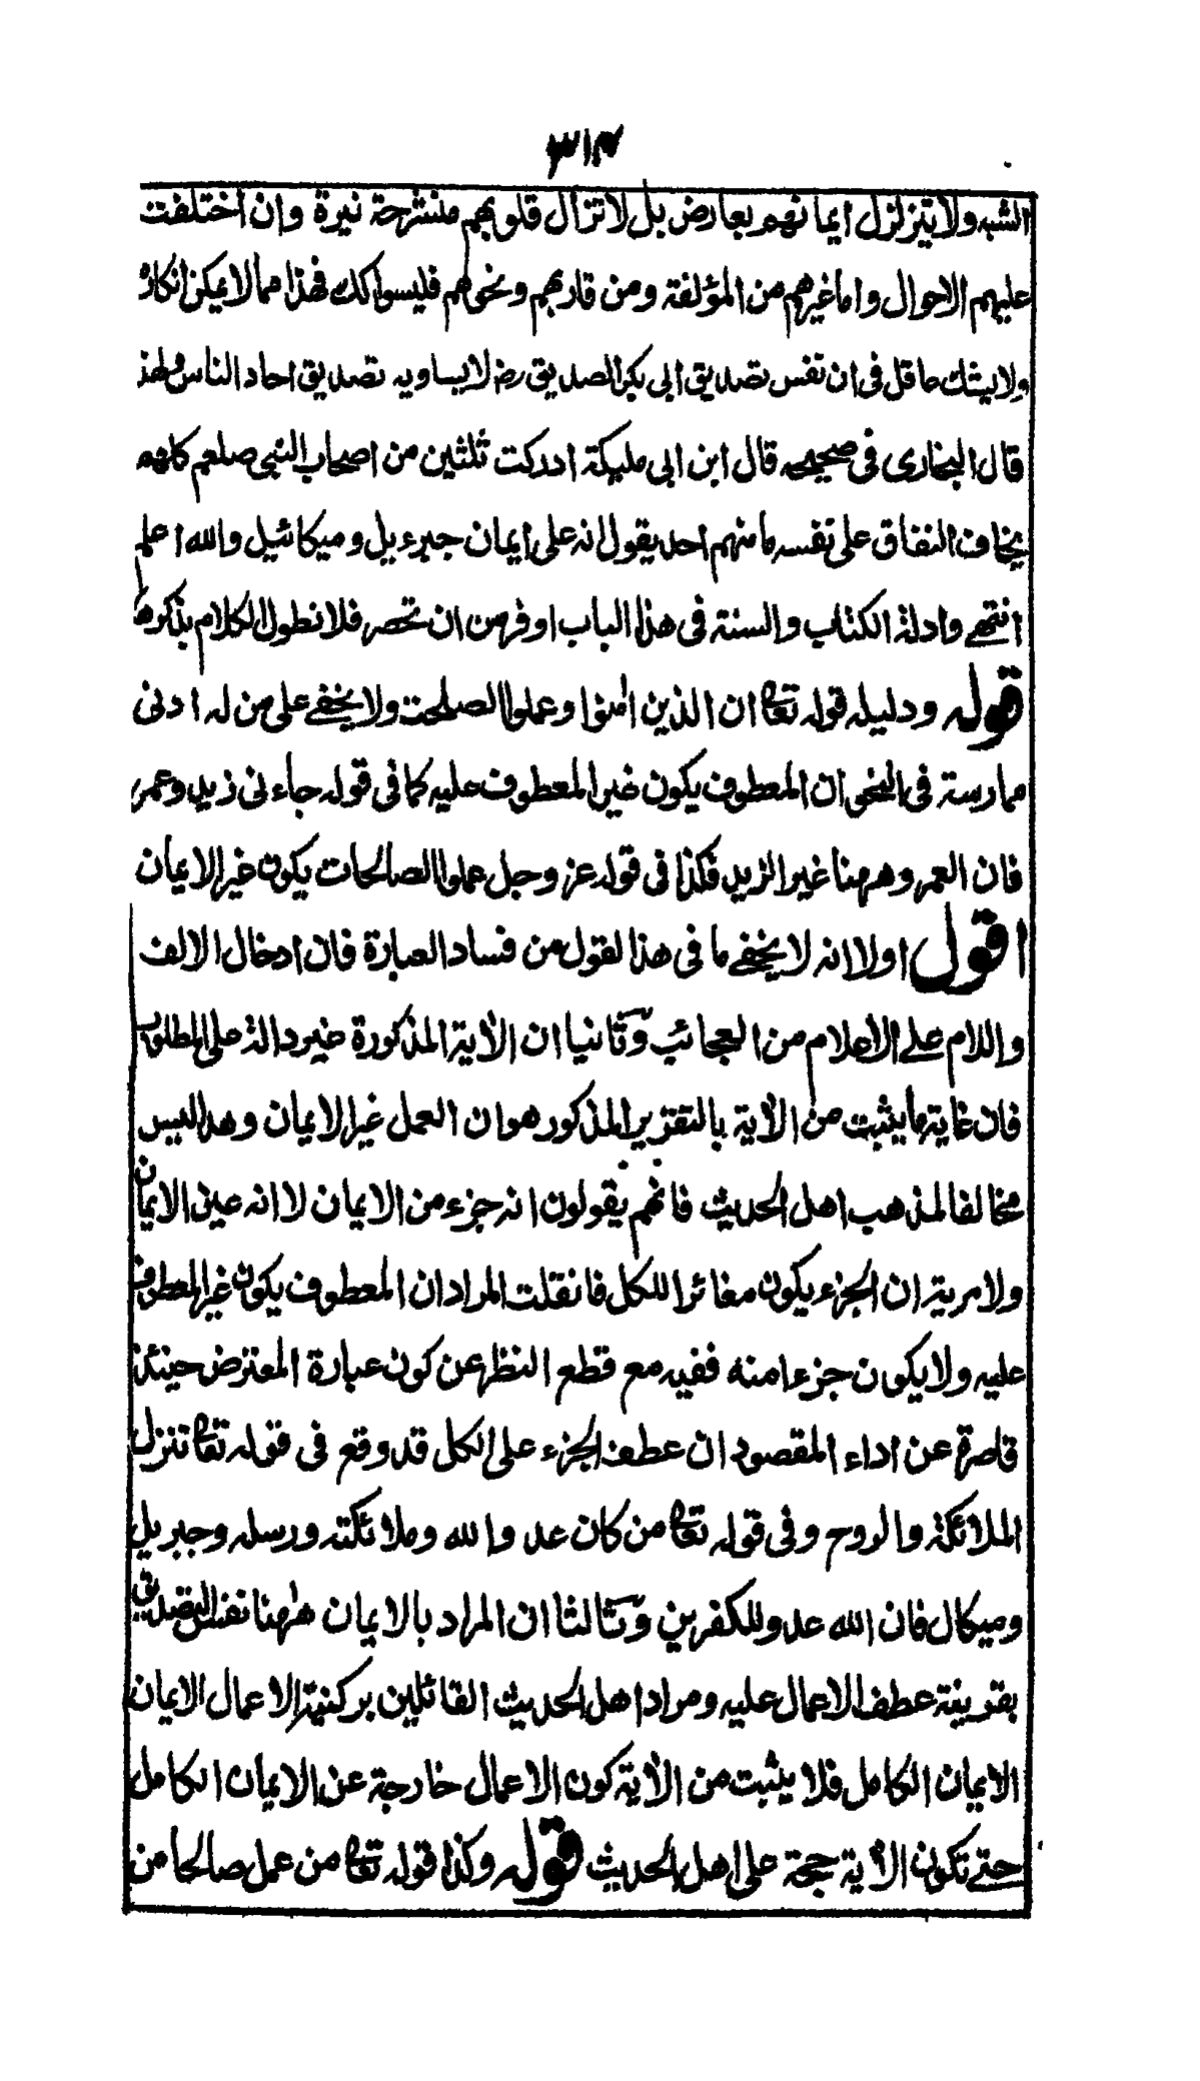 ٣١٤
الشبه ولا يتزلزل ايمانهم بعارض بل لا تزال قلوبهم منشرحة نيرة وان اختلفت
عليهم الاحوال واما غيرهم من المؤلفة ومن قاربهم ونحوهم فليسوا كذلك فهذا مما لا يمكن انكاره
ولا يشك عاقل فى ان نفس تصديق ابى بكر الصديق رض لا يساويه تصديق احاد الناس ولهذا
قال البخارى فى صحيحه قال ابن ابى مليكة ادركت ثلثين من اصحاب النبى صلعم كلهم
يخاف النفاق على نفسه ما منهم احد يقول انه على ايمان جبرءيل وميكائيل والله اعلم
انتهى وادلة الكتاب والسنة فى هذا الباب اوفر من ان تحصر فلا نطول الكلام بذكرها
قوله ودليله قوله تعا ان الذين امنوا وعملوا الصلحت ولا يخفى على من له ادنى
ممارسة فى النحو ان المعطوف يكون غير المعطوف عليه كما فى قوله جاءنى زيد وعمر
فان العمر وههنا غير الزيد فكذا فى قوله عز وجل عملوا الصالحات يكون غير الايمان
اقول اولا انه لا يخفى ما فى هذا لقول من فساد العبارة فان ادخال الالف
واللام على الاعلام من العجائب وثانيا ان الاية المذكورة غير دالة على المطلوب
فان غاية ما يثبت من الاية بالتقرير المذكور هو ان العمل غير الايمان وهذا ليس
مخالفا لمذهب اهل الحديث فانهم يقولون انه جزء من الايمان لا انه عين الايمان
ولا مرية ان الجزء يكون مغائرا للكل فان قلت المراد ان المعطوف يكون غير المعطوف
عليه ولا يكون جزءا منه ففيه مع قطع النظر عن كون عبارة المعترض حينئذ
قاصرة عن اداء المقصود ان عطف الجزء على الكل قد وقع فى قوله تعا تنزل
الملائكة والروح وفى قوله تعا من كان عدوا لله وملائكته ورسله وجبريل
وميكال فان الله عدو للكفرين وثالثا ان المراد بالايمان ههنا نفس التصديق
بقرينة عطف الاعمال عليه ومراد اهل الحديث القائلين بركنية الاعمال الايمان
الايمان الكامل فلا يثبت من الاية كون الاعمال خارجة عن الايمان الكامل
حتى تكون الاية حجة على اهل الحديث قوله وكذا قوله تعا من عمل صالحا من